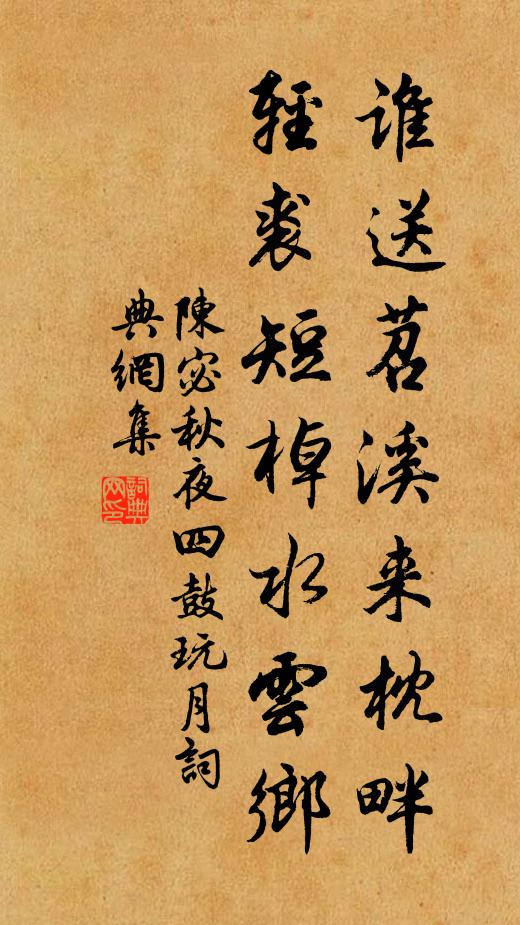 谁送苕溪来枕畔
輕裘短棹水雲鄉
陳宓秋夜四鼓玩月詞
典網集
詞典網印